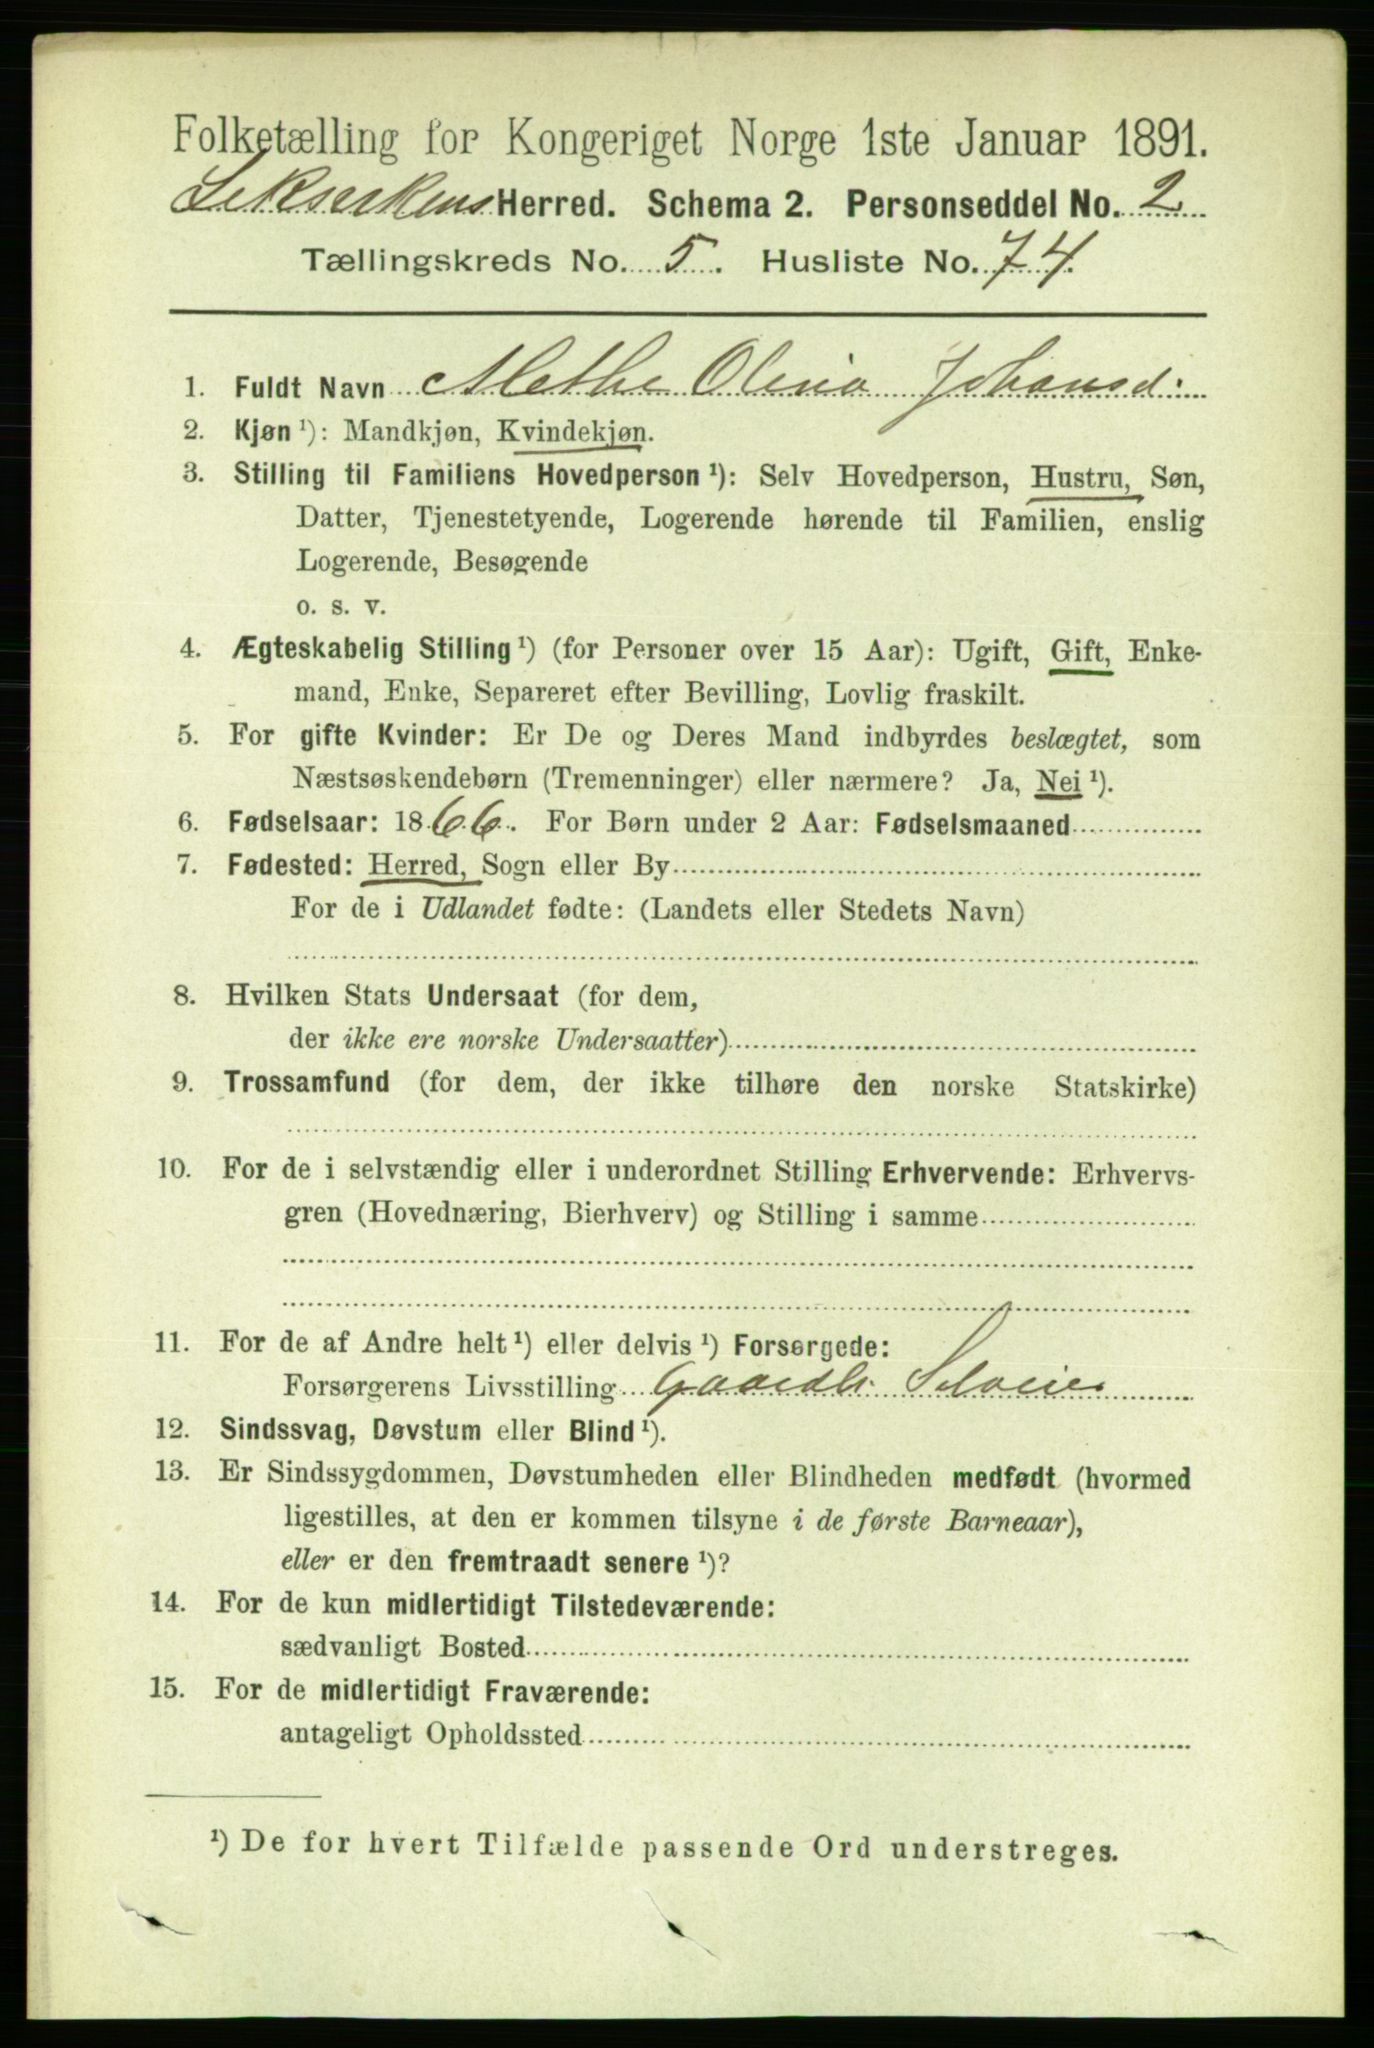 Folketælling for Kongeriget Norge 1ste Januar 1891.
Herred. Schema 2. Personseddel No. 2
Tællingskreds No. 5. Husliste No. 74.
1. Fuldt Navn Methe Olina Johansd:
2. Kjøn ¹): Mandkjøn, Kvindekjøn.
3. Stilling til Familiens Hovedperson ¹): Selv Hovedperson, Hustru, Søn,
Datter, Tjenestetyende, Logerende hørende til Familien, enslig
Logerende, Besøgende
o. s. v.
4. Ægteskabelig Stilling ¹) (for Personer over 15 Aar): Ugift, Gift, Enke-
mand, Enke, Separeret efter Bevilling, Lovlig fraskilt.
5. For gifte Kvinder: Er De og Deres Mand indbyrdes beslægtet, som
Næstsøskendebørn (Tremenninger) eller nærmere? Ja, Nei ¹).
6. Fødselsaar: 1866. For Børn under 2 Aar: Fødselsmaaned
7. Fødested: Herred, Sogn eller By
For de i Udlandet fødte: (Landets eller Stedets Navn)
8. Hvilken Stats Undersaat (for dem,
der ikke ere norske Undersaatter)
9. Trossamfund (for dem, der ikke tilhøre den norske Statskirke)
10. For de i selvstændig eller i underordnet Stilling Erhvervende: Erhvervs-
gren (Hovednæring, Bierhverv) og Stilling i samme
11. For de af Andre helt ¹) eller delvis ¹) Forsørgede:
Forsørgerens Livsstilling Gaardbr. Selveier
12. Sindssvag, Døvstum eller Blind ¹).
13. Er Sindssygdommen, Døvstumheden eller Blindheden medfødt (hvormed
ligestilles, at den er kommen tilsyne i de første Barneaar),
eller er den fremtraadt senere ¹)?
14. For de kun midlertidigt Tilstedeværende:
sædvanligt Bosted
15. For de midlertidigt Fraværende:
antageligt Opholdssted
¹) De for hvert Tilfælde passende Ord understreges.